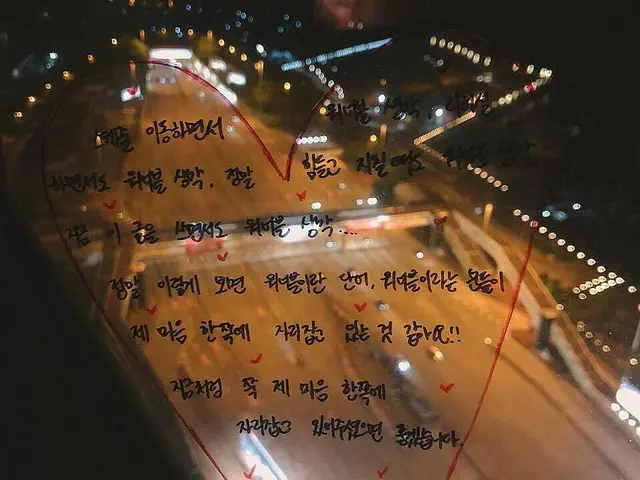 스케줄 이동하면서 워너블 생각, 리허설
하면서도 워너블 생각, 정말 힘들고 지칠 때도 워너블 생각
지금 이 글을 쓰면서도 워너블 생각....
정말 이렇게 보면 워너블이란 단어, 워너블이라는 분들이
제 마음 한쪽에 자리잡고 있는 것 같아요!!
지금처럼 쭉 제 마음 한쪽에
자리잡고 있어주셨으면 좋겠습니다.